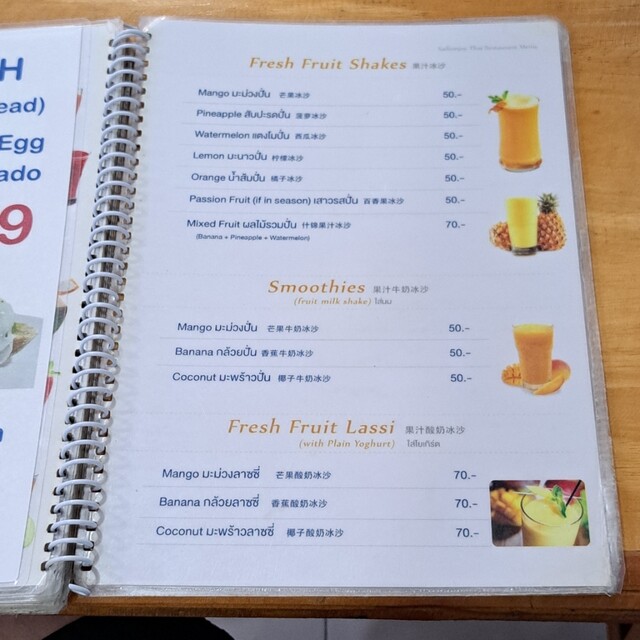 H
ead)
Egg
ado
9
Thai Restaurant Menu
Fresh Fruit Shakes 果汁冰沙
Mango มะม่วงปั่น 芒果冰沙 50.-
Pineapple สับปะรดปั่น 菠萝冰沙 50.-
Watermelon แตงโมปั่น 西瓜冰沙 50.-
Lemon มะนาวปั่น 柠檬冰沙 50.-
Orange น้ำส้มปั่น 橘子冰沙 50.-
Passion Fruit (if in season) เสาวรสปั่น 百香果冰沙 50.-
Mixed Fruit ผลไม้รวมปั่น 什锦果汁冰沙 70.-
(Banana + Pineapple + Watermelon)
Smoothies 果汁牛奶冰沙
(fruit milk shake) ใส่นม
Mango มะม่วงปั่น 芒果牛奶冰沙 50.-
Banana กล้วยปั่น 香蕉牛奶冰沙 50.-
Coconut มะพร้าวปั่น 椰子牛奶冰沙 50.-
Fresh Fruit Lassi 果汁酸奶冰沙
(with Plain Yoghurt) ใส่โยเกิร์ต
Mango มะม่วงลาซซี่ 芒果酸奶冰沙 70.-
Banana กล้วยลาซซี่ 香蕉酸奶冰沙 70.-
Coconut มะพร้าวลาซซี่ 椰子酸奶冰沙 70.-